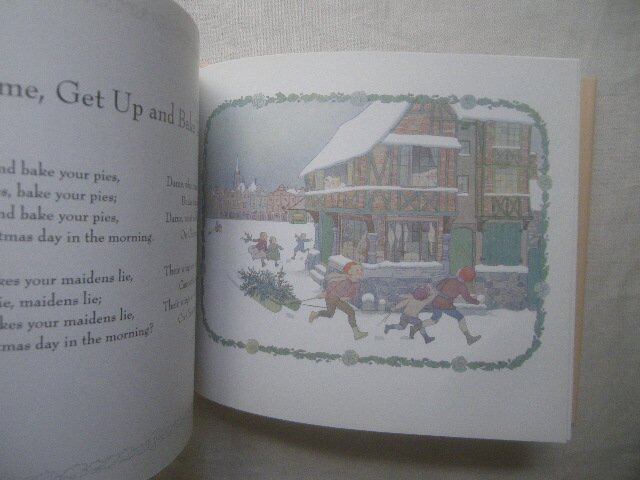 me, Get Up and Bake
nd bake your pies,
s, bake your pies;
nd bake your pies,
tmas day in the morning.
kes your maidens lie,
lie, maidens lie;
kes your maidens lie,
tmas day in the morning?
Dame,
Dame,